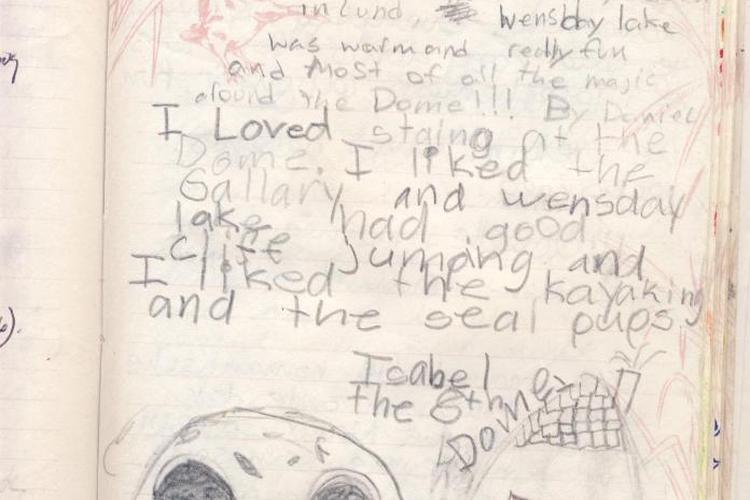 in Lund, Wensday lake
was warm and really fun
and most of all the magic
around the Dome!!! By Daniel
I Loved staing at the
Dome. I liked the
Gallary and wensday
lake had good
cliff Jumping and
I liked the kayaking
and the seal pups
Isabel
the 8th
Dome